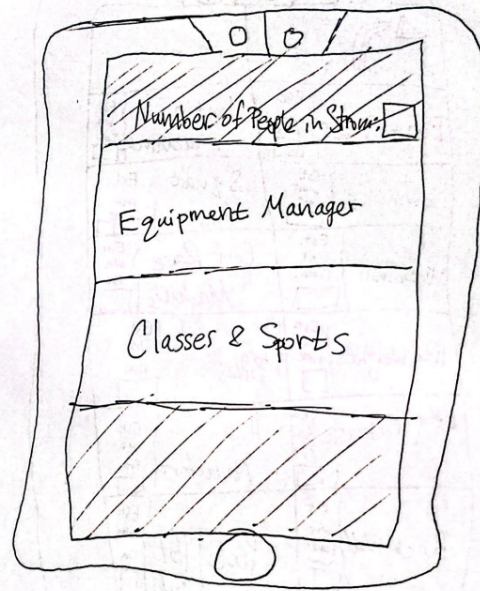 Number of People in Strom:
Equipment Manager
Classes & Sports